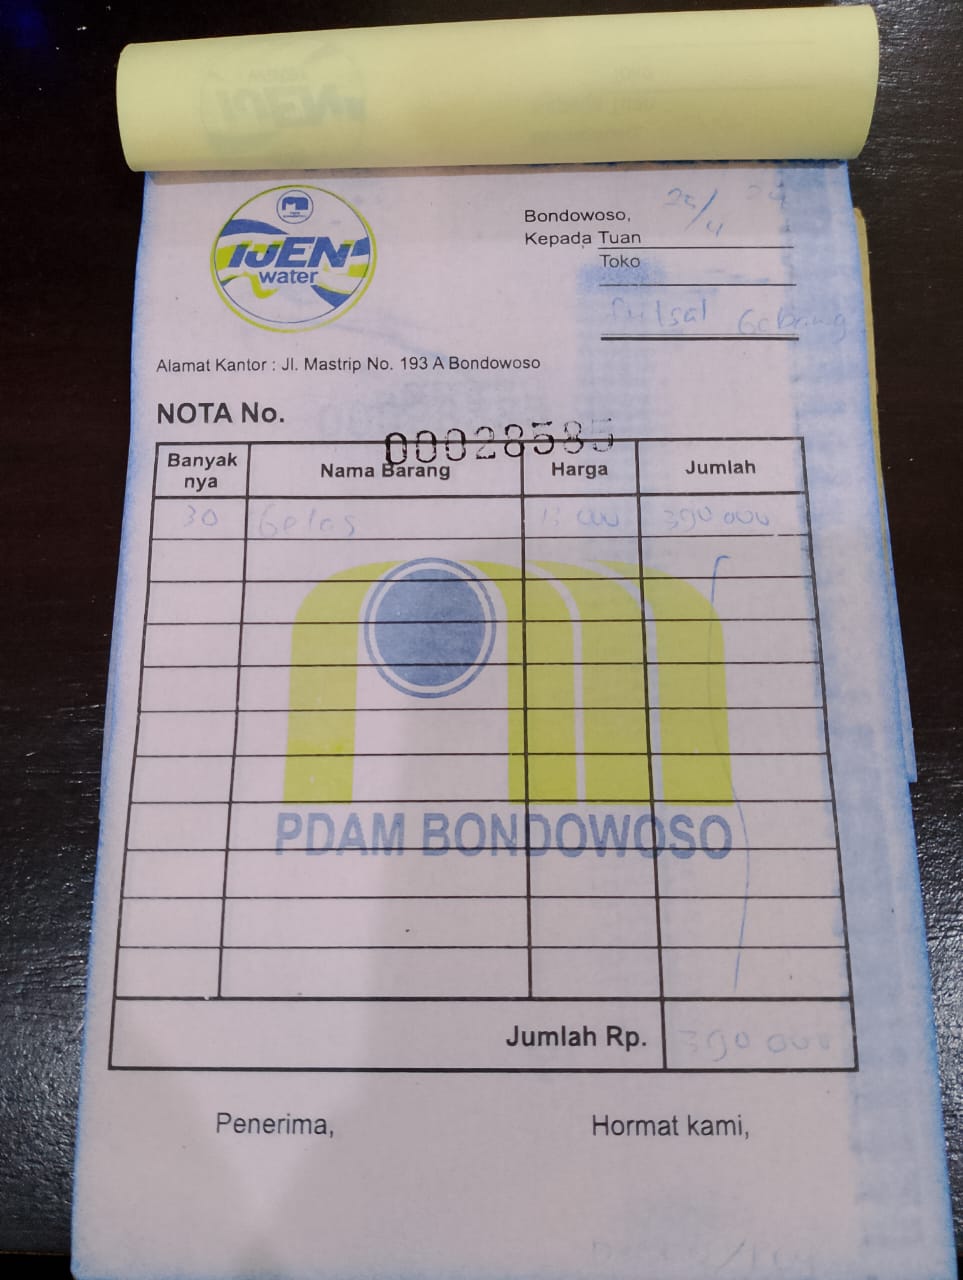 IJEN
water
Bondowoso, 25/4 24
Kepada Tuan
Toko
Futsal Gebang
Alamat Kantor : Jl. Mastrip No. 193 A Bondowoso
NOTA No.
00028585
Banyak nya Nama Barang Harga Jumlah
30 Gelas 13 000 390 000
PDAM BONDOWOSO
Jumlah Rp. 390 000
Penerima, Hormat kami,